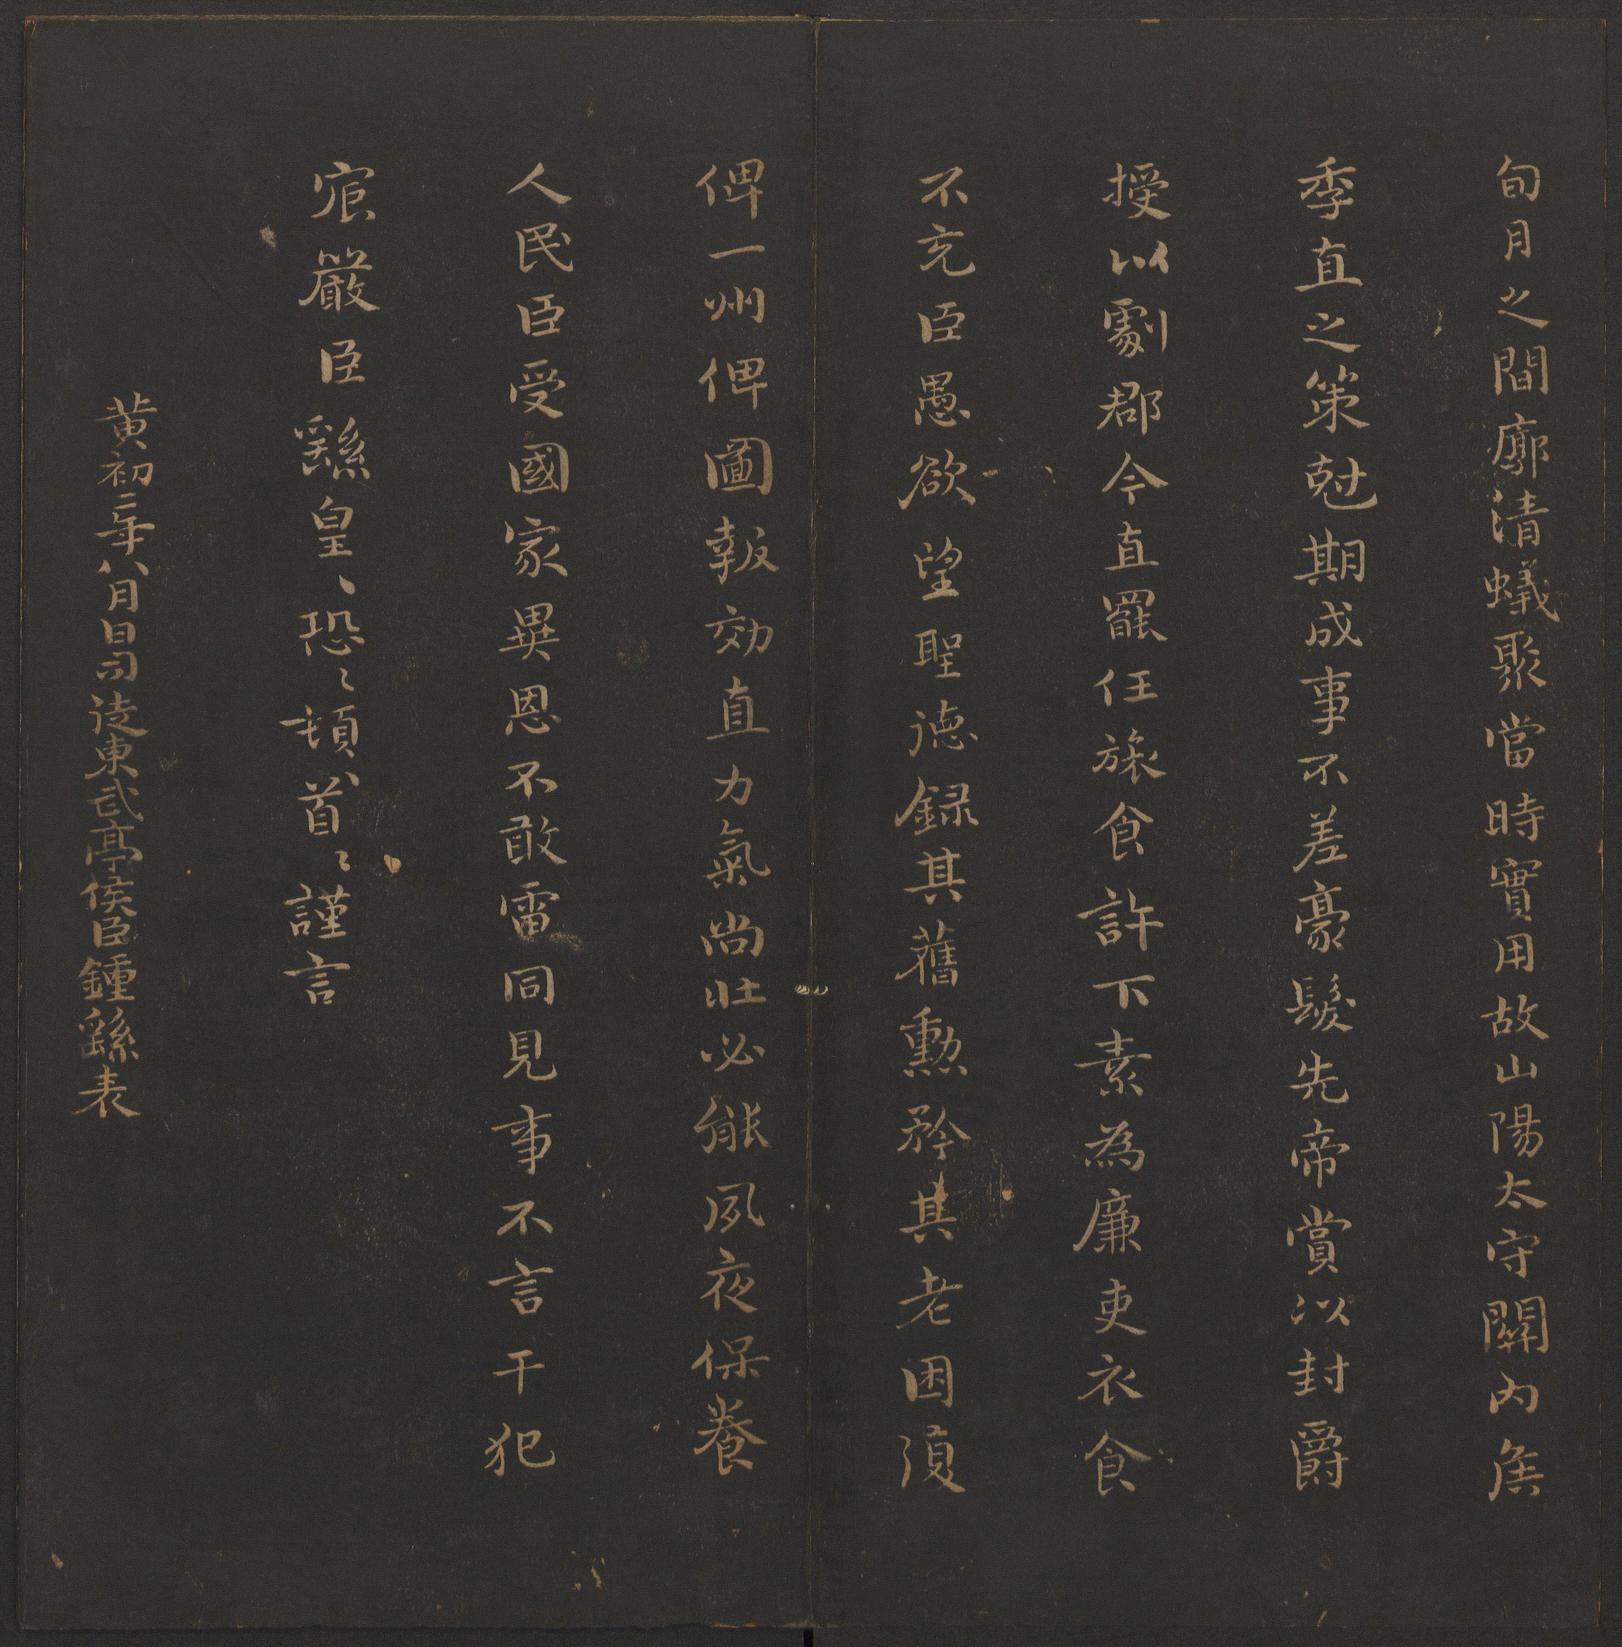 旬月之間廓清蟻聚當時實用故山陽太守關內侯
季直之策尅期成事不差豪髮先帝賞以封爵
授以劇郡今直罷任旅食許下素為廉吏衣食
不充臣愚欲望聖德錄其舊勳矜其老困復
俾一州俾圖報效直力氣尚壯必能夙夜保養
人民臣受國家異恩不敢雷同見事不言干犯
宸嚴臣繇皇〻恐〻頓〻首〻謹言
黃初二年八月日司徒東武亭侯臣鍾繇表